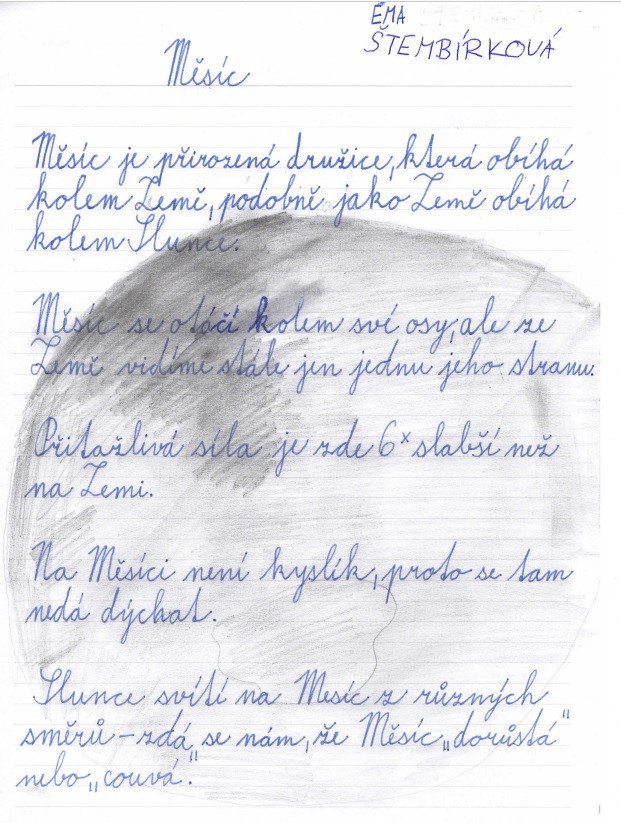 EMA
ŠTEMBÍRKOVÁ
Měsíc
Měsíc je přirozená družice, která obíhá
kolem Země, podobně jako Země obíhá
kolem Slunce.
Měsíc se otóčí kolem své osy, ale ze
Země vidíme stále jen jednu jeho stranu.
Přitažlivá síla je zde 6ˣ slabší než
na Zemi.
Na Měsíci není kyslík, proto se tam
nedá dýchat.
Slunce svítí na Mesíc z různých
směrů – zdá se nám, že Měsíc „dorůstá"
nebo „couvá."